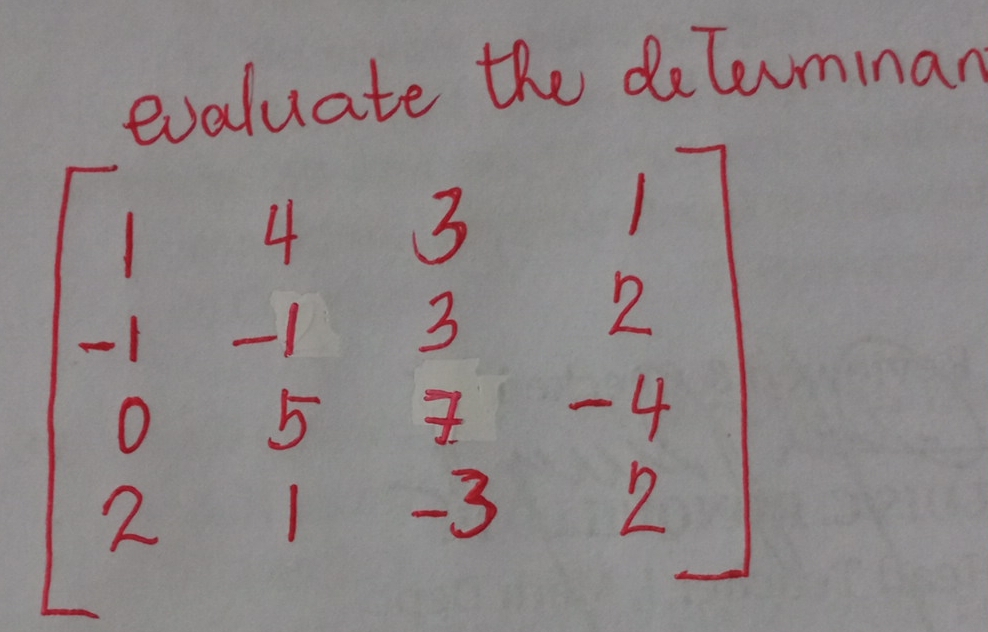 evaluate the determinan
1 4 3 1
-1 -1 3 2
0 5 7 -4
2 1 -3 2